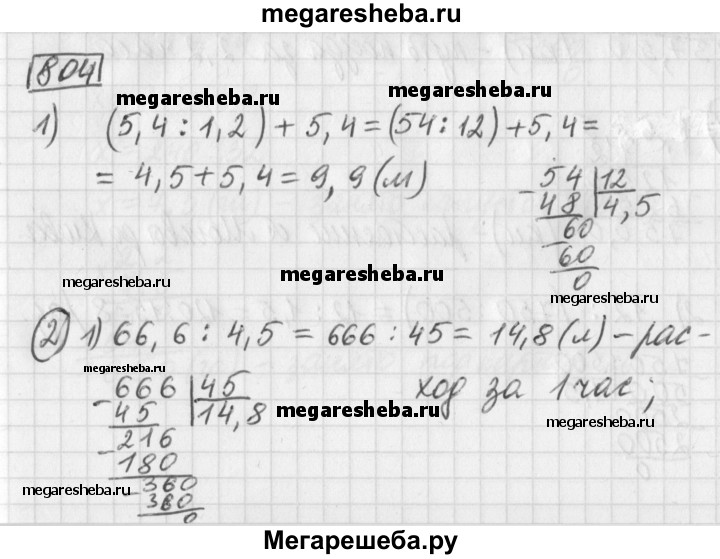 megaresheba.ru
804
megaresheba.ru
megaresheba.ru
1) (5,4 : 1,2) + 5,4 = (54 : 12) + 5,4 =
= 4,5 + 5,4 = 9,9 (м)
- 54 | 12
48 | 4,5
- 60
60
0
megaresheba.ru
megaresheba.ru
megaresheba.ru
2) 1) 66,6 : 4,5 = 666 : 45 = 14,8 (л) – рас-
ход за 1 час;
megaresheba.ru
- 666 | 45
45 | 14,8
- 216
180
- 360
360
0
megaresheba.ru
megaresheba.ru
megaresheba.ru
Мегарешеба.ру